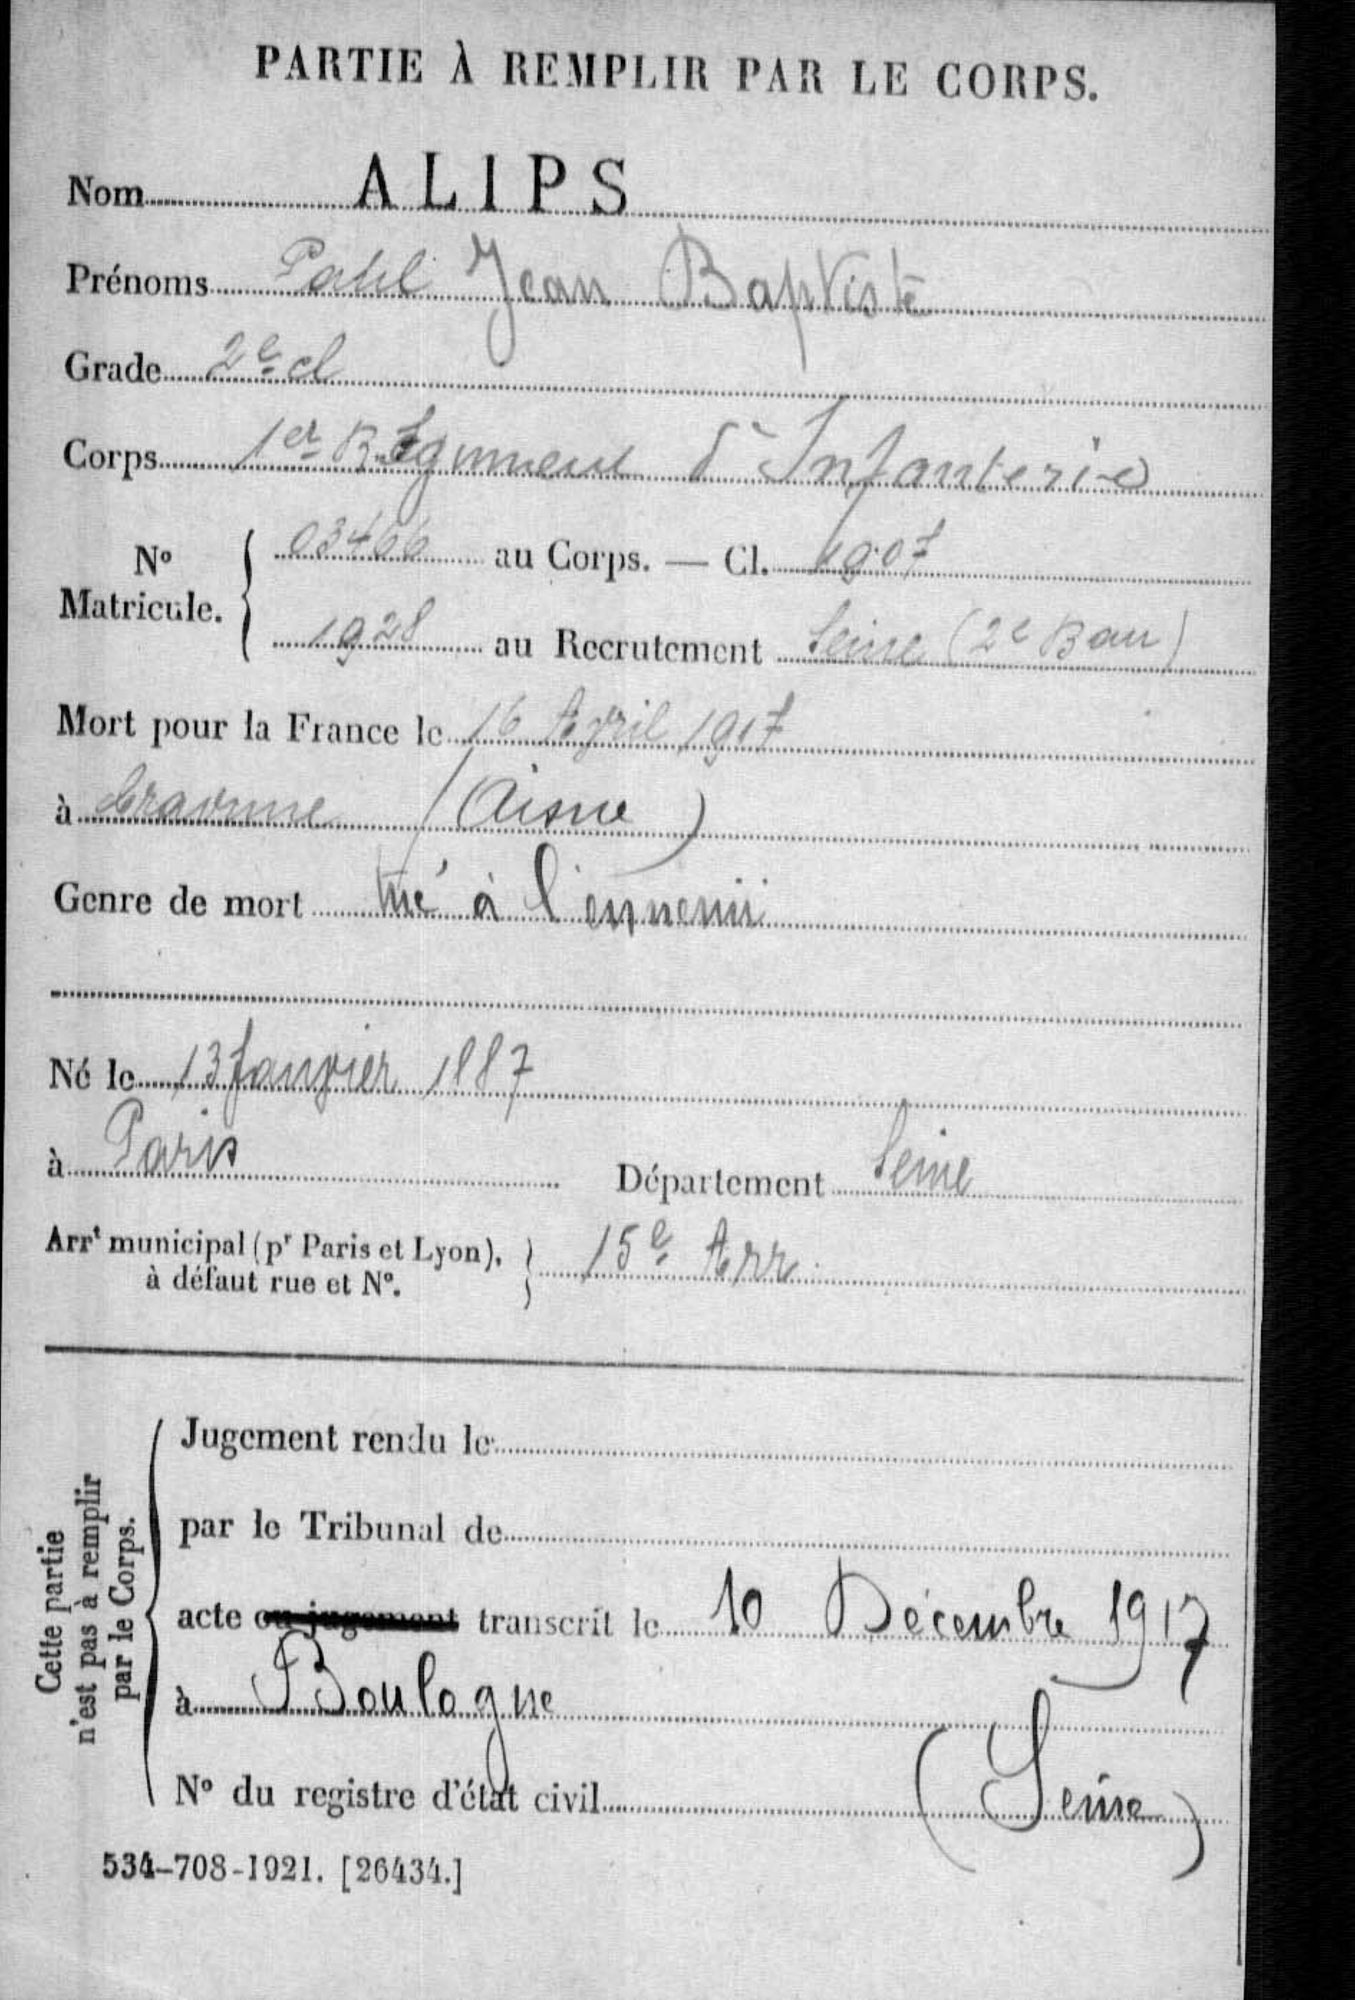 PARTIE À REMPLIR PAR LE CORPS.
Nom ALIPS
Prénoms Paul Jean Baptiste
Grade 2e cl
Corps 1er Régiment d'Infanterie
No Matricule. 03466 au Corps. — Cl. 1907
1928 au Recrutement Seine (2e Bau)
Mort pour la France le 16 Avril 1917
à Craonne (Aisne)
Genre de mort tué à l'ennemi
Né le 13 Janvier 1887
à Paris Département Seine
Arrt municipal (pr Paris et Lyon), 15e Arr.
à défaut rue et No.
Cette partie
n'est pas à remplir
par le Corps.
Jugement rendu le
par le Tribunal de
acte ou jugement transcrit le 10 Décembre 1917
à Boulogne
(Seine)
No du registre d'état civil
534-708-1921. [26434.]